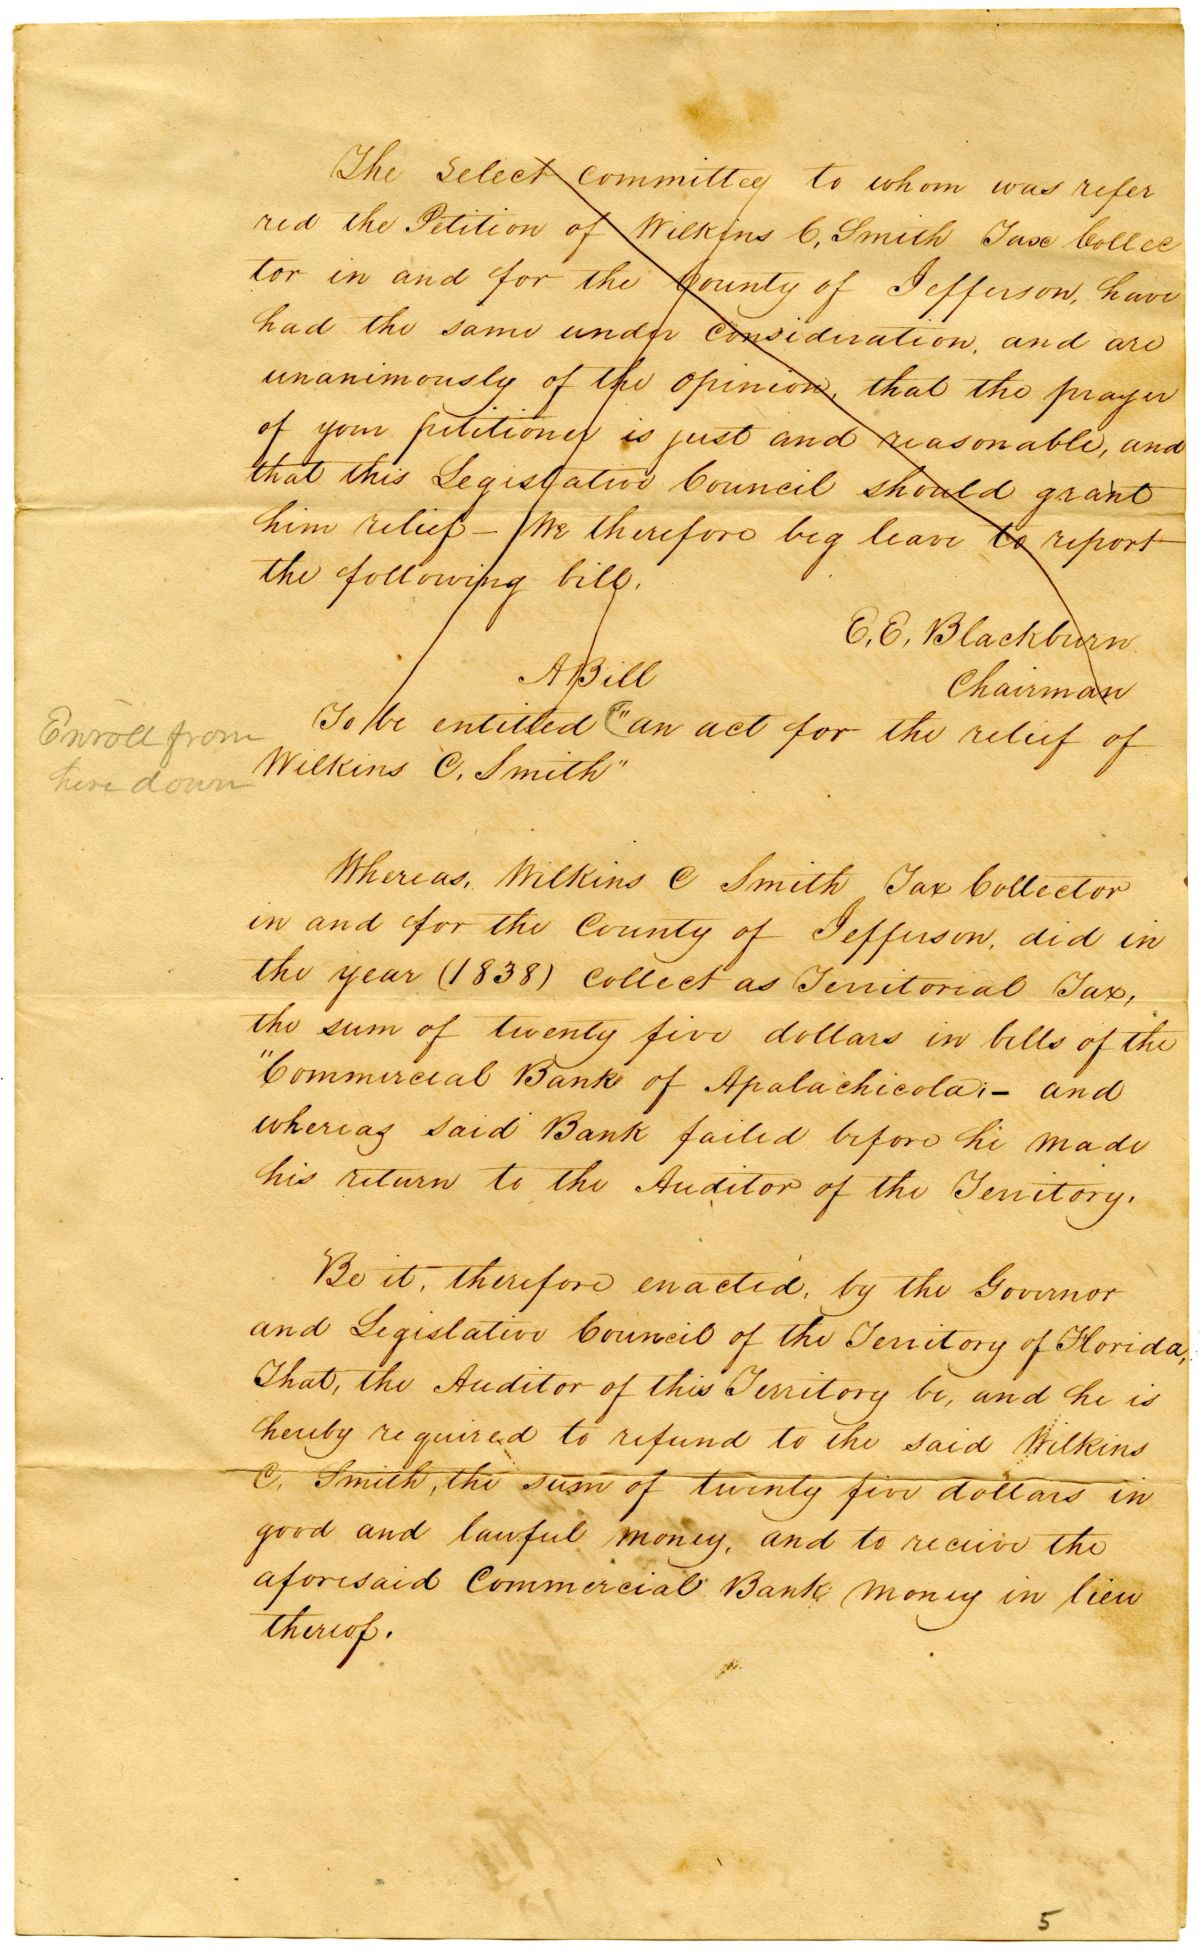 The Select Committee to whom was refer
red the Petition of Wilkins C, Smith Tax Collec
tor in and for the County of Jefferson, have
had the same under consideration, and are
unanimously of the opinion, that the prayer
of your petitioner is just and reasonable, and
that this Legislative Council should grant
him relief – We therefore beg leave to report
the following bill.
E, E, Blackburn.
Chairman
A Bill
To be entitled "an act for the relief of
Wilkins C. Smith"
Enroll from
here down
Whereas, Wilkins C Smith Tax Collector
in and for the County of Jefferson, did in
the year (1838) collect as Territorial Tax,
the sum of twenty five dollars in bills of the
"Commercial Bank of Apalachicola;– and
whereas said Bank failed before he made
his return to the Auditor of the Territory.
Be it, therefore enacted, by the Governor
and Legislative Council of the Territory of Florida,
That, the Auditor of this Territory be, and he is
hereby required to refund to the said Wilkins
C. Smith, the sum of twenty five dollars in
good and lawful money, and to receive the
aforesaid Commercial Bank money in lieu
thereof.
5